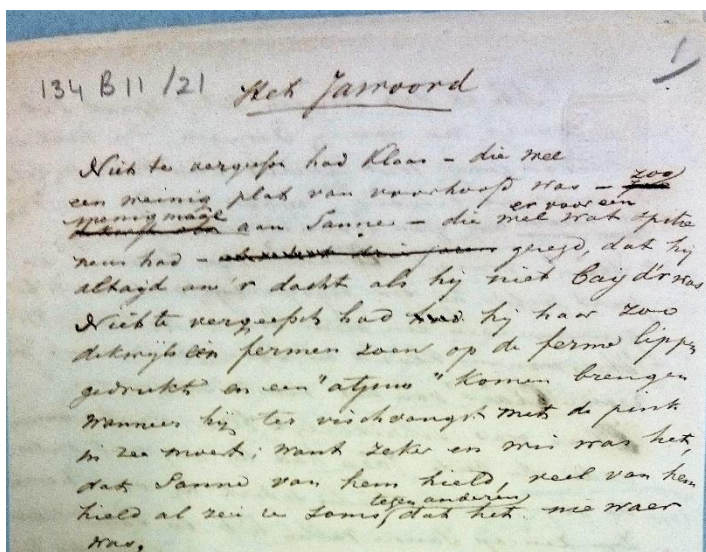 134 B 11 / 21
1
Het Jawoord
Niet te vergeefs had Klaas – die wel
een weinig plat van voorhoofd was – zoo
menigmale aan Sanne – die wel er voor een wat spitse
neus had – gezegd, dat hij
altayd an 'r dacht als hij niet bay d'r was
Niet te vergeefsch had hij haar zoo
dikwijls een fermen zoen op de ferme lippen
gedrukt en een "atjuus" komen brengen
wanneer hij ter vischvangst met de pink
in zee moest; want zeker en wis was het,
dat Sanne van hem hield, veel van hem
hield al zei ze soms tegen anderen dat het nie waer
was,